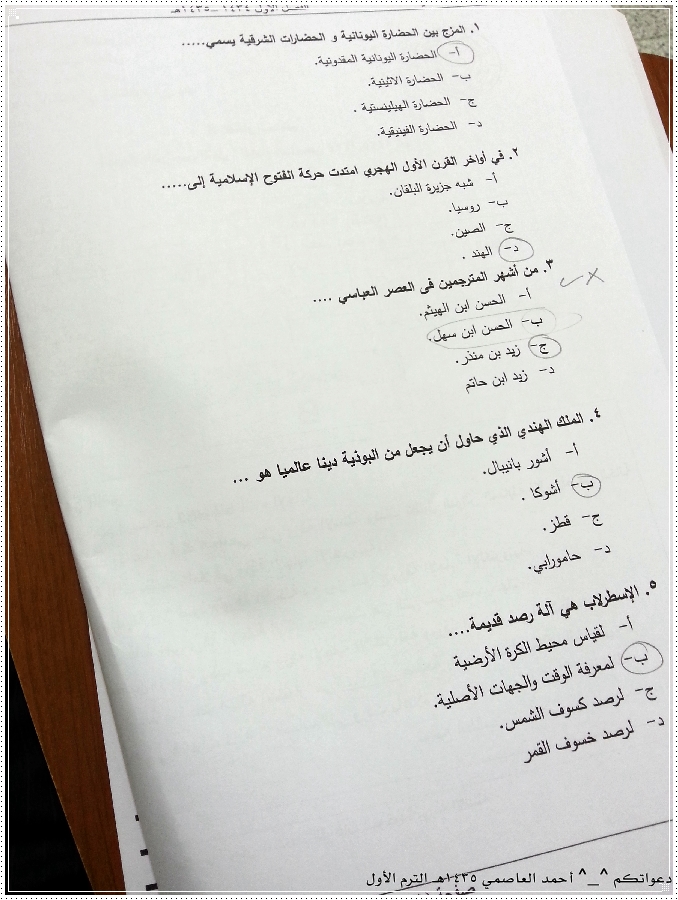 الفصل الأول ١٤٣٤ _١٤٣٥هـ
١. المزج بين الحضارة اليونانية و الحضارات الشرقية يسمي.....
أ- الحضارة اليونانية المقدونية.
ب- الحضارة الاثينية.
ج- الحضارة الهيلينستية .
د- الحضارة الفينيقية.
٢. في أواخر القرن الأول الهجري امتدت حركة الفتوح الإسلامية إلى.....
أ- شبه جزيرة البلقان.
ب- روسيا.
ج- الصين.
د- الهند .
٣. من أشهر المترجمين فى العصر العباسي ....
أ- الحسن ابن الهيثم.
ب- الحسن ابن سهل.
ج- زيد بن منذر.
د- زيد ابن حاتم
٤. الملك الهندي الذي حاول أن يجعل من البوذية دينا عالميا هو ...
أ- أشور بانيبال.
ب- أشوكا .
ج- قطز.
د- حامورابي.
٥. الإسطرلاب هي آلة رصد قديمة....
أ- لقياس محيط الكرة الأرضية
ب- لمعرفة الوقت والجهات الأصلية.
ج- لرصد كسوف الشمس.
د- لرصد خسوف القمر
دعواتكم ^_^ أحمد العاصمي ١٤٣٥هـ الترم الأول